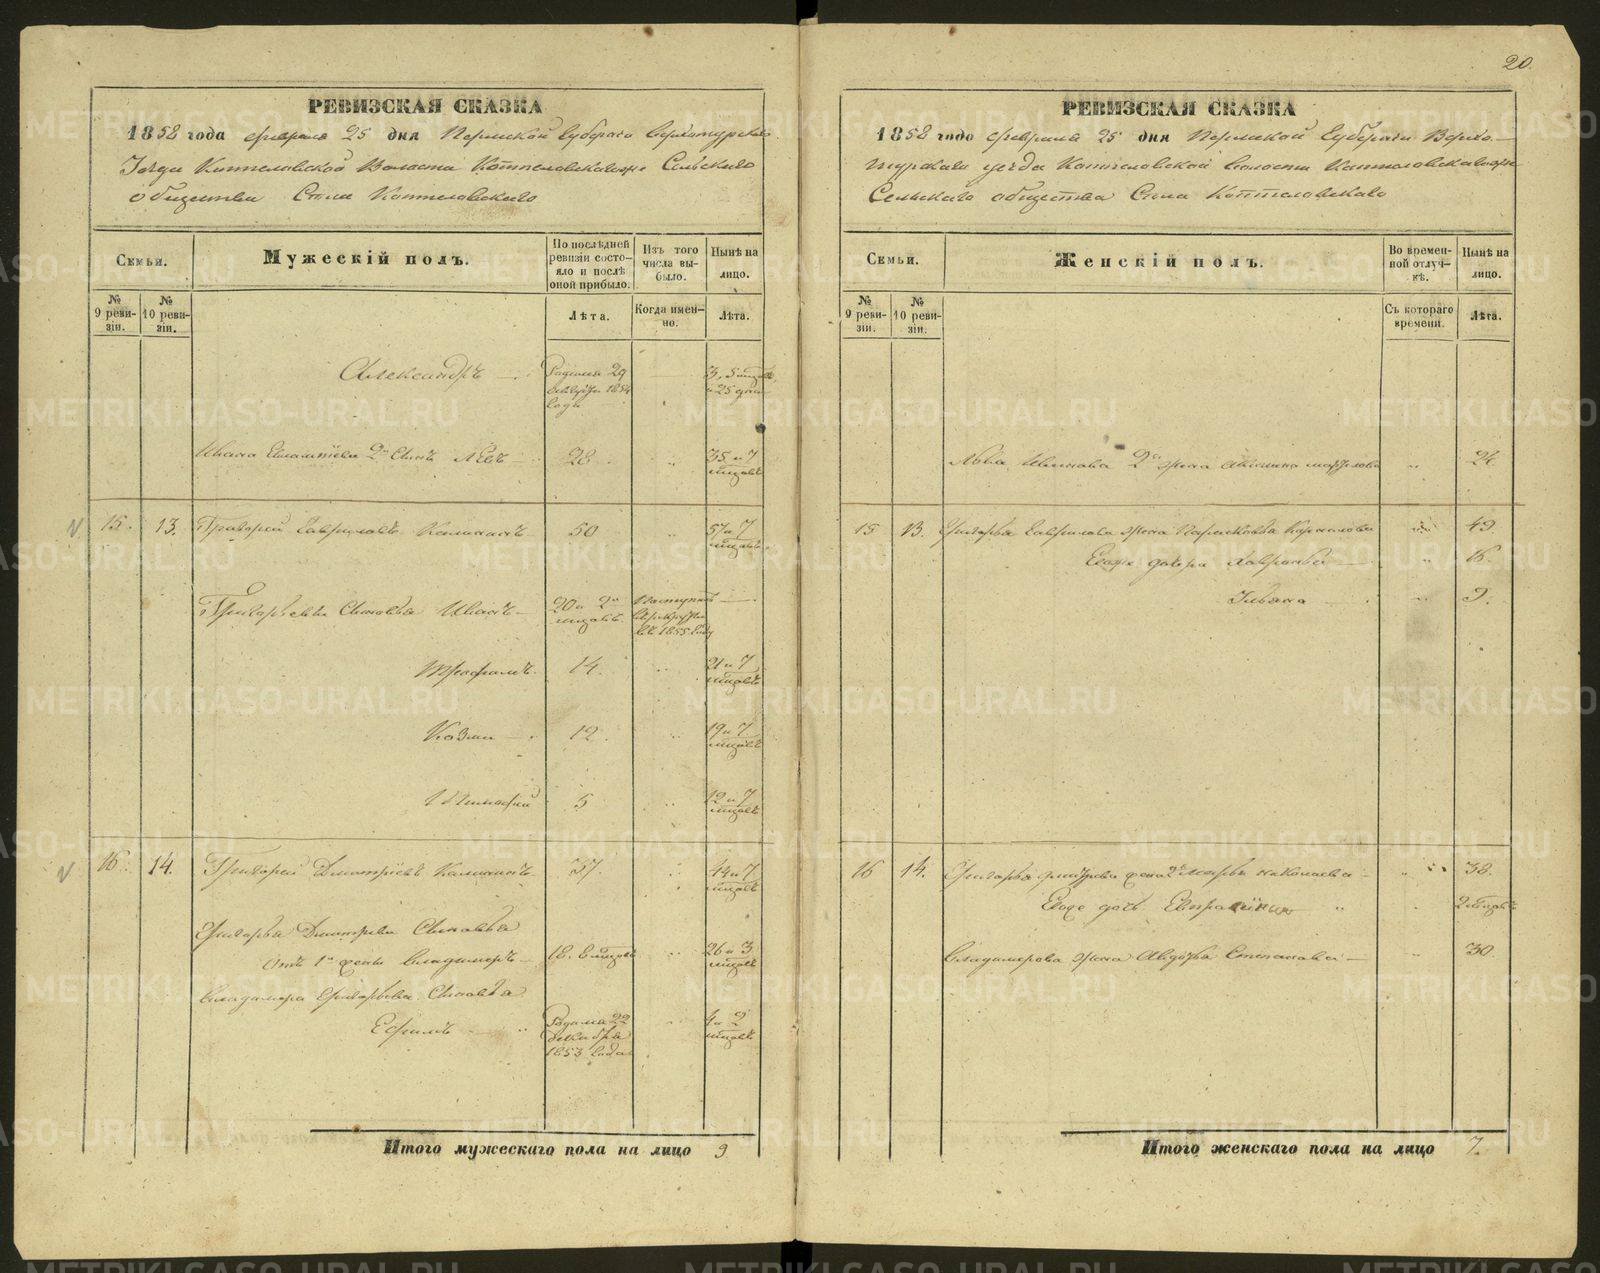 20.
РЕВИЗСКАЯ СКАЗКА
1858 года февраля 25 дня Пермской Губернiи Верхотурскаго
Уезда Коптеловской Волости Коптеловскаго же Сельскаго
общества Села Коптеловскаго
Семьи.
Мужескiй полъ.
По послѣдней ревизiи состояло и послѣ оной прибыло.
Изъ того числа выбыло.
Нынѣ на лицо.
№ 9 ревизiи.
№ 10 ревизiи.
Лѣта.
Когда именно.
Лѣта.
Александръ
Родился 29
1854
года
3, 5 мѣсяц.
и 25 дней
Ивана 2й Сынъ Левъ 28 „ 35 и 7
мѣсяцъ
15. 13. Григорей Гавриловъ Калининъ 50 „ 57 и 7
мѣсяцъ
Григорьевы Сыновья Иванъ 20 и 2
мѣсяцъ
Поступилъ
в рекруты
въ 1855 году
Трофимъ 14. 21 и 7
мѣсяцъ
Козма 12. 19 и 7
мѣсяцъ
Тимофей 5 12 и 7
мѣсяцъ
16. 14. Григорей Дмитрiевъ Калининъ 37. 44 и 7
мѣсяцъ
Григорья Дмитрiева Сыновья
отъ 1й жены Владимеръ 18. 8 мѣсяцъ 26 и 3
мѣсяцъ
Владимера Григорьева Сыновья
Ефимъ
Родился 22
декабря
1853 года
4 и 2
мѣсяцъ
Итого мужескаго пола на лицо 9
РЕВИЗСКАЯ СКАЗКА
1858 года февраля 25 дня Пермской Губернiи Верхо-
турскаго уезда Коптеловской волости Коптеловскаго же
Сельскаго общества Села Коптеловскаго
Семьи.
Женскiй полъ.
Во временной отлучкѣ.
Нынѣ на лицо.
№ 9 ревизiи.
№ 10 ревизiи.
Съ котораго времени.
Лѣта.
Льва Иванова 2я жена „ 24
15 13. Григорья Гаврилова жена Парасковья Корнилова „ 49
Егоже дочери Хавронья „ 16
Ульяна „ 9.
16 14. Григорья Дмитрiева жена 2я Марья Николаева „ 38.
Егоже дочь „ 2 мѣсяц.
Владимерова жена Авдотья Степанова „ 30.
Итого женскаго пола на лицо 7.
METRIKI.GASO-URAL.RU